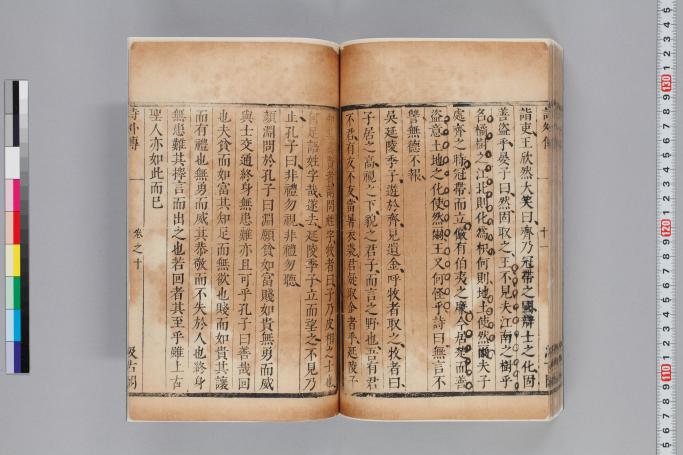 詩外傳 十一
詣吏王欣然大笑曰齊乃冠帶之國辯士之化固
善盜乎晏子曰然固取之王不見夫江南之樹乎
名橘樹之江北則化為枳何則地土使然爾夫子
處齊之時冠帶而立儼有伯夷之廉今居楚而善
盜意土地之化使然爾王又何怪乎詩曰無言不
讐無德不報
吳延陵季子遊於齊見遺金呼牧者取之牧者曰
子居之高視之下貌之君子而言之野也吾有君
不君有友不友當暑衣裘君疑取金者乎延陵子
知其為賢者請問姓字牧者曰子乃皮相之士也
何足語姓字哉遂去延陵季子立而望之不見乃
止孔子曰非禮勿視非禮勿聽
顏淵問於孔子曰淵願貧如富賤如貴無勇而威
與士交通終身無患難亦且可乎孔子曰善哉回
也夫貧而如富其知足而無欲也賤而如貴其讓
而有禮也無勇而威其恭敬而不失於人也終身
無患難其擇言而出之也若回者其至乎雖上古
聖人亦如此而已
詩外傳 卷之十 汲古閣